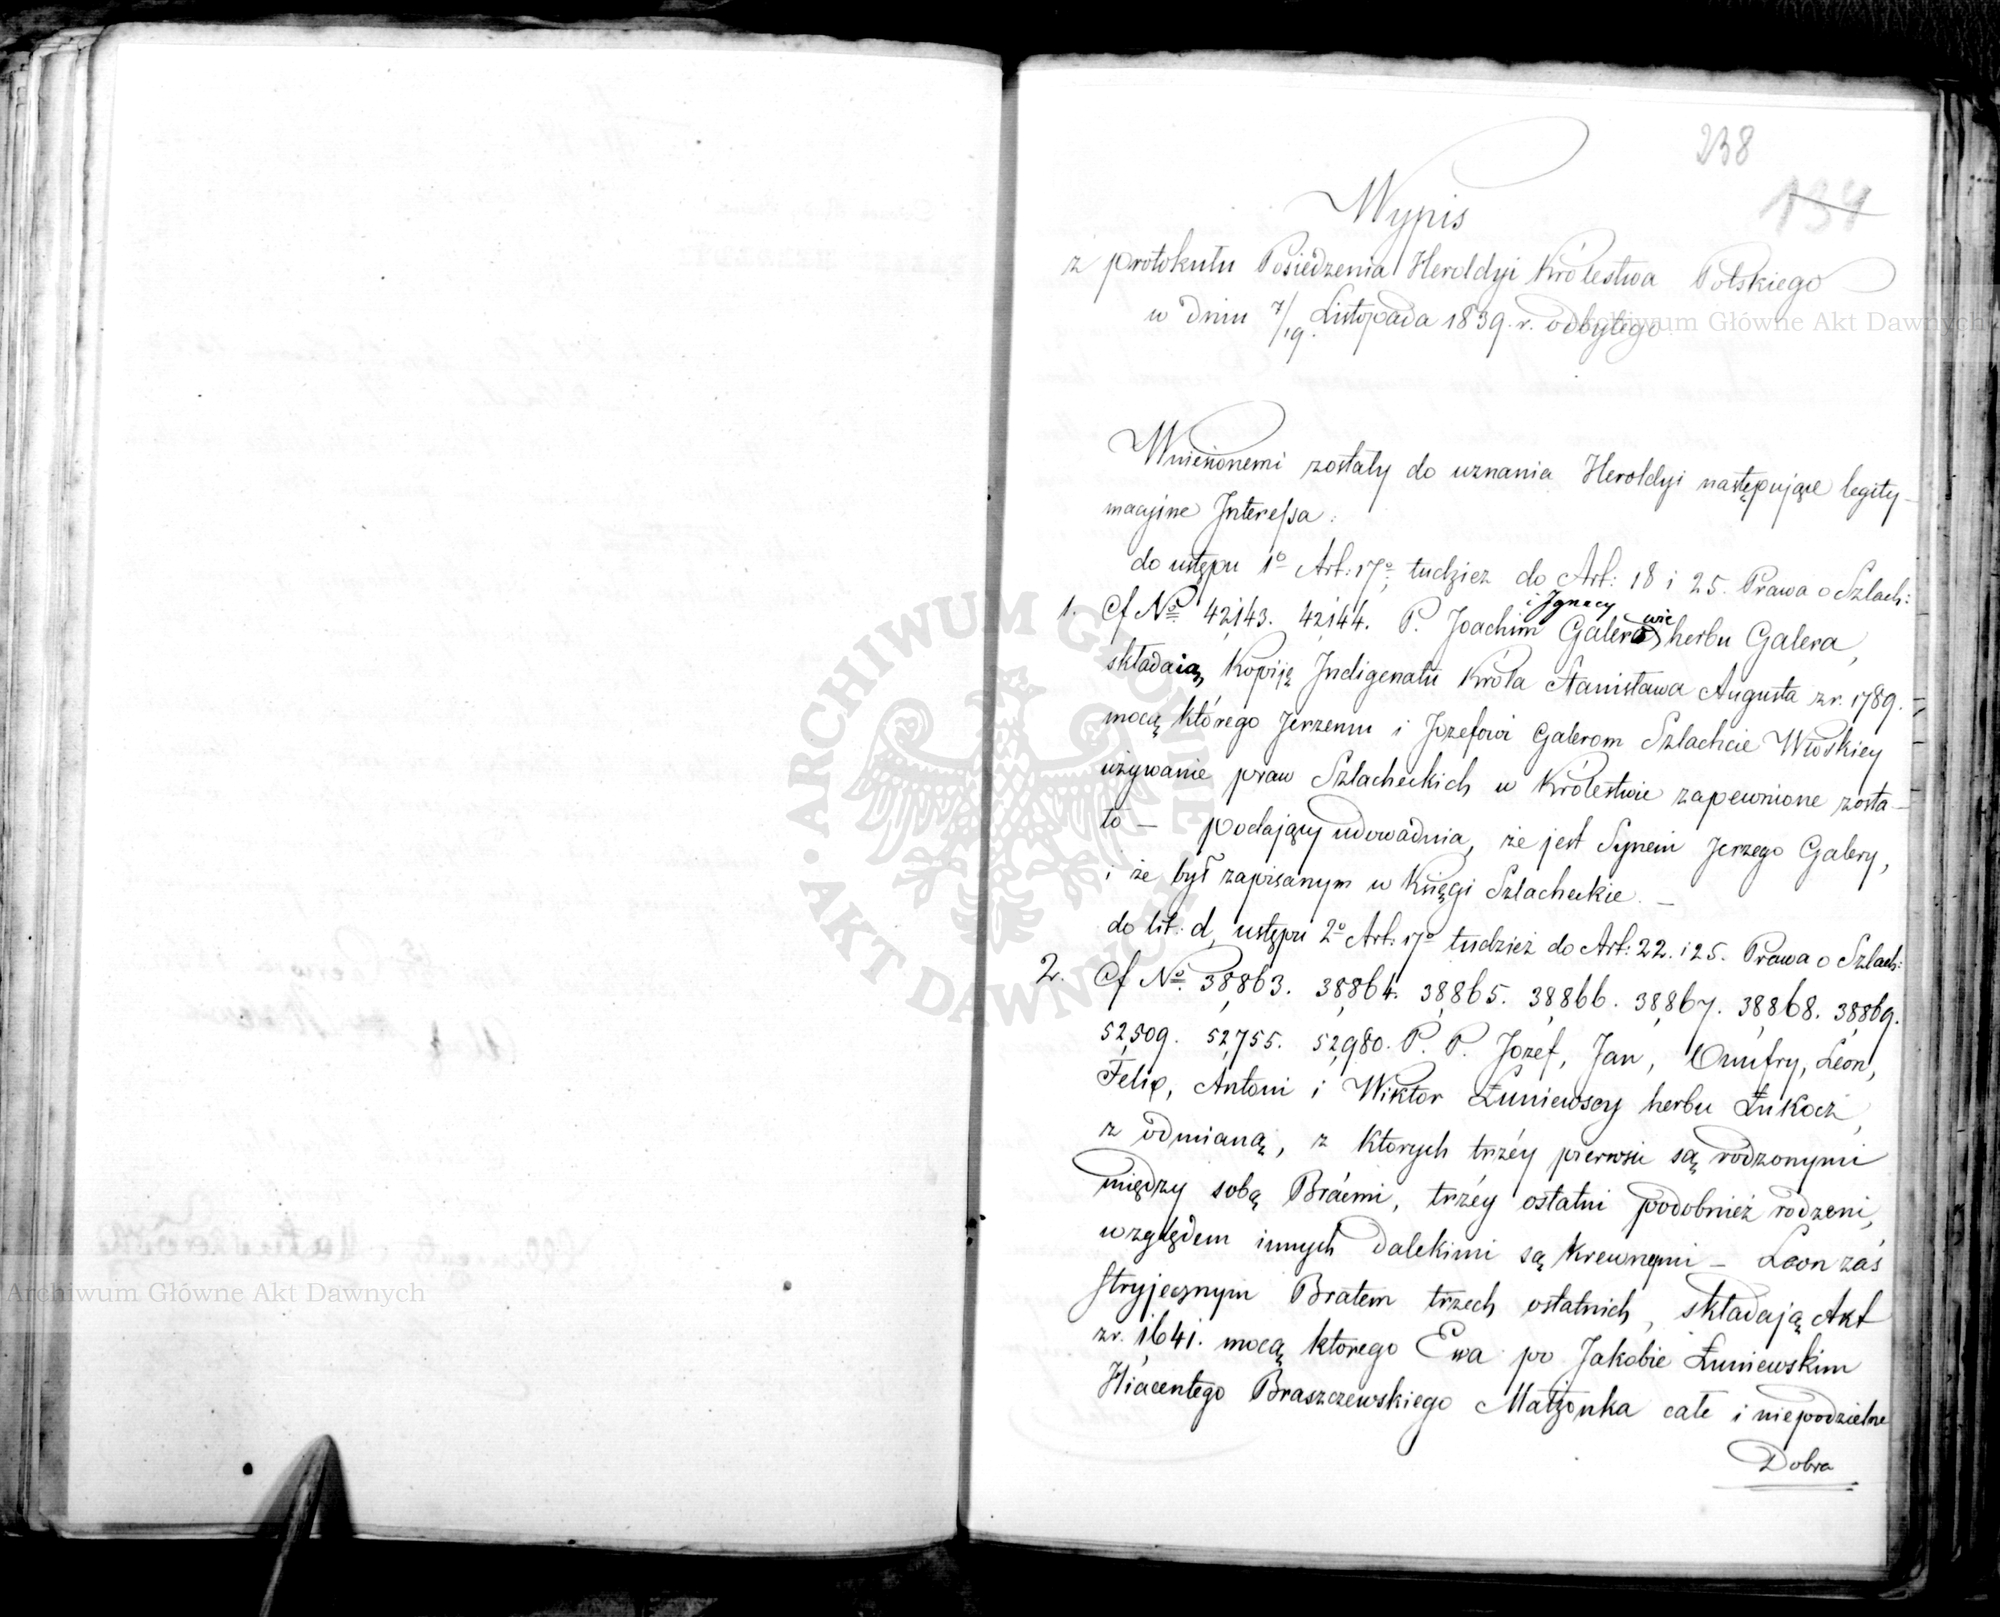 238
134
Wypis
z protokułu Posiedzenia Heroldyi Królestwa Polskiego
w dniu 7/19. Listopada 1839. r. odbytego
Archiwum Główne Akt Dawnych
Wniesionemi zostały do uznania Heroldyi następujące legity-
macyine Interessa:
do ustępu 1o Art: 17o, tudzież do Art: 18 i 25. Prawa o Szlach:
1. No 42,143. 42,144. P. Joachim i Ignacy Galerowie herbu Galera,
składaią Kopiję Indigenatu Króla Stanisława Augusta z r. 1789.
mocą którego Jerzemu i Jozefowi Galerom Szlachcie Włoskiey
używanie praw Szlacheckich w Królestwie zapewnione zosta-
ło — podający udowadnia, że jest Synem Jerzego Galery,
i że był zapisanym w Księgi Szlacheckie. —
do lit: d, ustępu 2o Art: 17o tudzież do Art: 22. i 25. Prawa o Szlach:
2. No 38,863. 38,864. 38,865. 38,866. 38,867. 38,868. 38,869.
52,509. 52,755. 52,980. P. P. Jozef, Jan, Onufry, Leon,
Felix, Antoni i Wiktor Łuniewscy herbu Łukocz,
z odmianą, z ktorych trzéy pierwsi są rodzonymi
między sobą Braćmi, trzéy ostatni podobnież rodzeni,
względem innych dalekimi są krewnymi — Leon zaś
stryjecznym Bratem trzech ostatnich, składają Akt
z r. 1641. mocą ktorego Ewa po Jakobie Łuniewskim
Hiacentego Braszczewskiego Małżonka całe i niepodzielne
Dobra
ARCHIWUM GŁÓWNE • AKT DAWNYCH •
Archiwum Główne Akt Dawnych